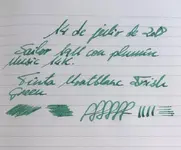 14 de julio de 2018
Sailor 1911 con plumín
music nib.
Tinta Montblanc Irish
Green